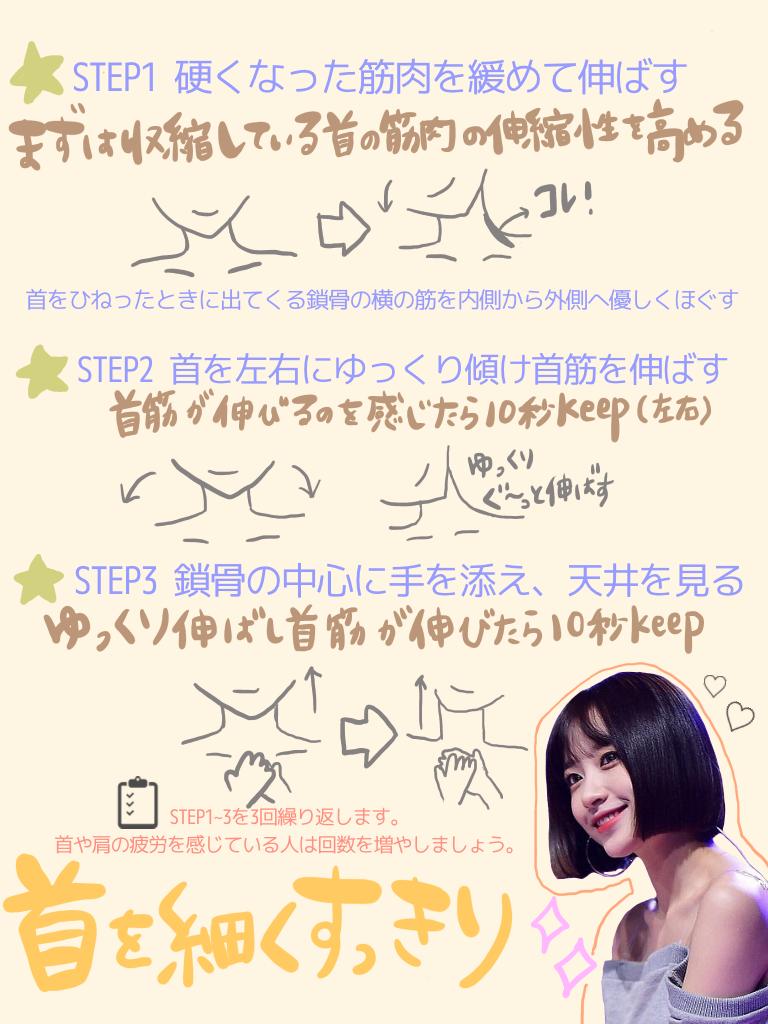 STEP1 硬くなった筋肉を緩めて伸ばす
まずは収縮している首の筋肉の伸縮性を高める
コレ!
首をひねったときに出てくる鎖骨の横の筋を内側から外側へ優しくほぐす
STEP2 首を左右にゆっくり傾け首筋を伸ばす
首筋が伸びるのを感じたら10秒keep(左右)
ゆっくり
ぐ〜っと伸ばす
STEP3 鎖骨の中心に手を添え、天井を見る
ゆっくり伸ばし首筋が伸びたら10秒keep
STEP1~3を3回繰り返します。
首や肩の疲労を感じている人は回数を増やしましょう。
首を細くすっきり